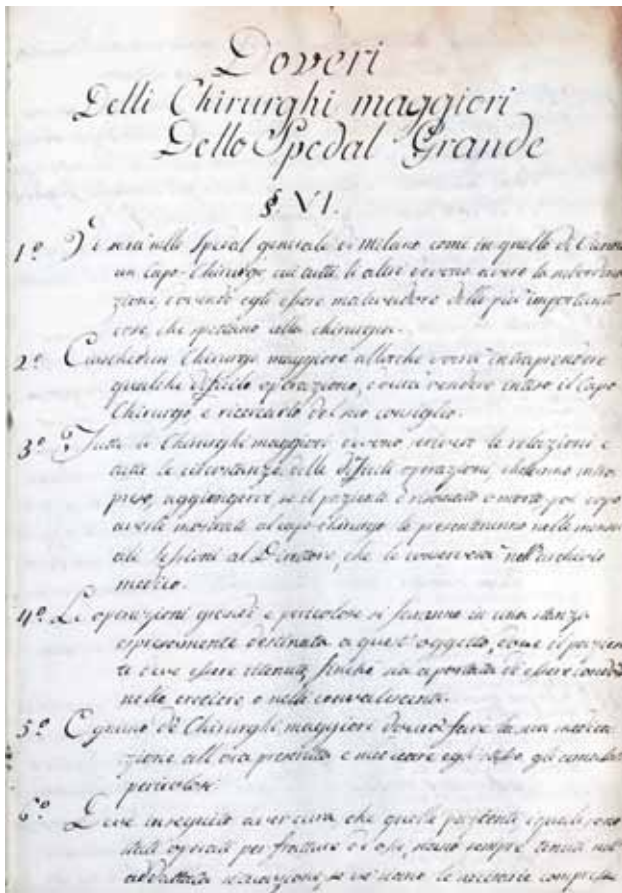 Doveri
Delli Chirurghi maggiori
Dello Spedal Grande
§. VI.
1º Vi sarà nello Spedal generale di Milano come in quello di Vienna
un Capo-Chirurgo cui tutti li altri devono avere la subordina
zione, dovendo egli essere delle più importanti
cose, che spettano alla chirurgia.
2º Ciaschedun Chirurgo maggiore allorchè vorrà intraprendere
qualche difficile operazione, dovrà rendere inteso il Capo
Chirurgo e ricercarlo del suo consiglio.
3º Tutti li Chirurghi maggiori devono scrivere le relazioni e
tutte le circostanze delle difficili operazioni, ch'hanno intra
preso, aggiungervi, se il paziente è risanato o morto, poi dopo
averle mostrate al capo-chirurgo le presenteranno nelle mensu
ali sessioni al Direttore, che le conserverà nell'archivio
medico.
4º Le operazioni grandi e pericolose si faranno in una stanza
espressamente destinata a quest'oggetto, dove il pazien
te deve essere ritenuto, finchè sia a portata di essere
nelle crociere o nelli convalescenti.
5º Ognuno de Chirurghi maggiore dovrà fare la sua medica
zione all'ora prescritta e medicare egli stesso gli ammalati
pericolosi.
6º Deve inseguito aver cura, che quelli pazienti, i quali sono
stati operati per fratture di ossi, siano sempre tenuti nell'
addattata situazione, se vi siano le necessarie compresse